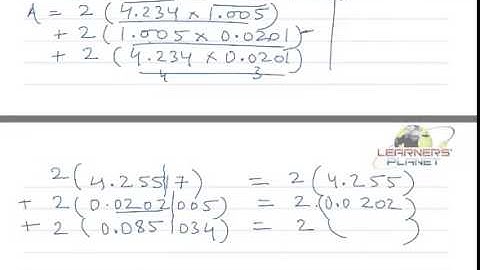 A = 2 (4.234 × 1.005)
+ 2 (1.005 × 0.0201)
+ 2 (4.234 × 0.0201)
4 3
LEARNERS'
PLANET
2 (4.255|7) = 2 (4.255)
+ 2 (0.0202|005) = 2.(0.0202)
+ 2 (0.085|034) = 2 ( )